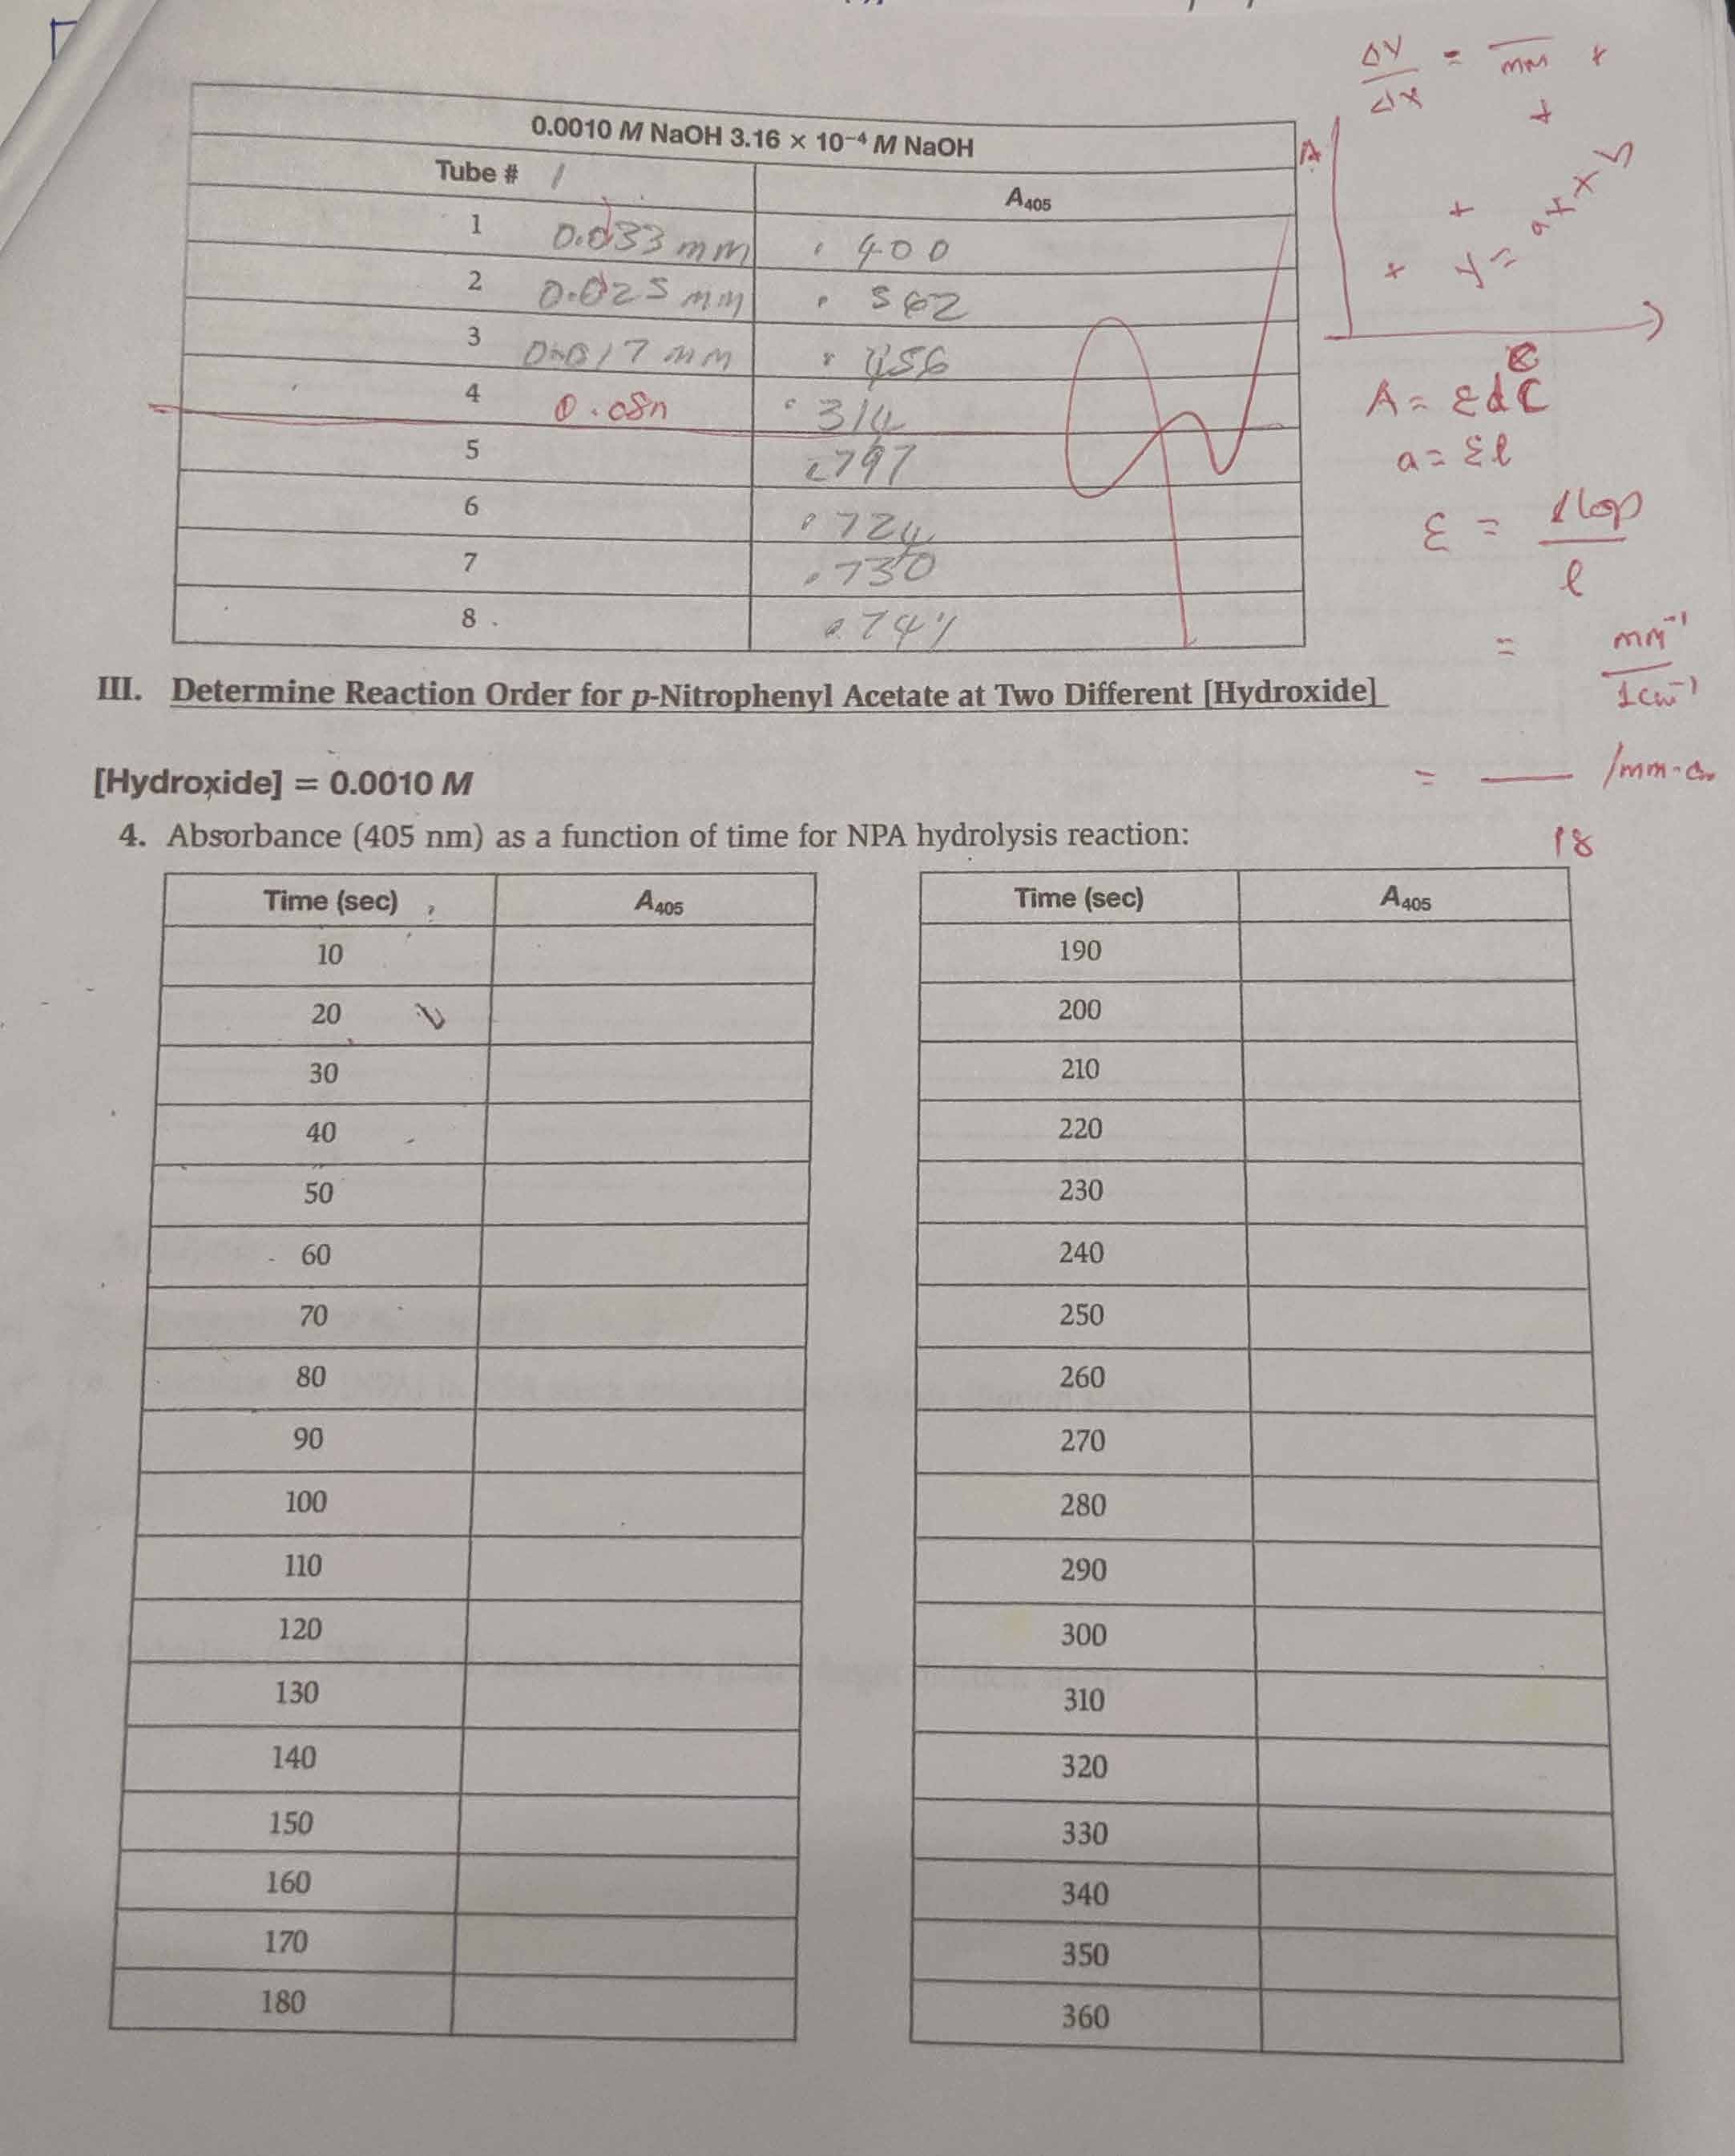 ΔY/ΔX = —/mM
0.0010 M NaOH 3.16 × 10⁻⁴ M NaOH
Tube # 1
A₄₀₅
A
1 0.033 mM .400
2 0.025 mM . 562
3 0.017 mM . 456
4 0.08 .314
5 .797
6 .724
7 .730
8 .741
y =
A = εdC
a = εl
ε = slop/l
= mM⁻¹/1cm⁻¹
= — /mM·cm
III. Determine Reaction Order for p-Nitrophenyl Acetate at Two Different [Hydroxide]
[Hydroxide] = 0.0010 M
4. Absorbance (405 nm) as a function of time for NPA hydrolysis reaction:
18
Time (sec) A₄₀₅
10
20
30
40
50
60
70
80
90
100
110
120
130
140
150
160
170
180
Time (sec) A₄₀₅
190
200
210
220
230
240
250
260
270
280
290
300
310
320
330
340
350
360